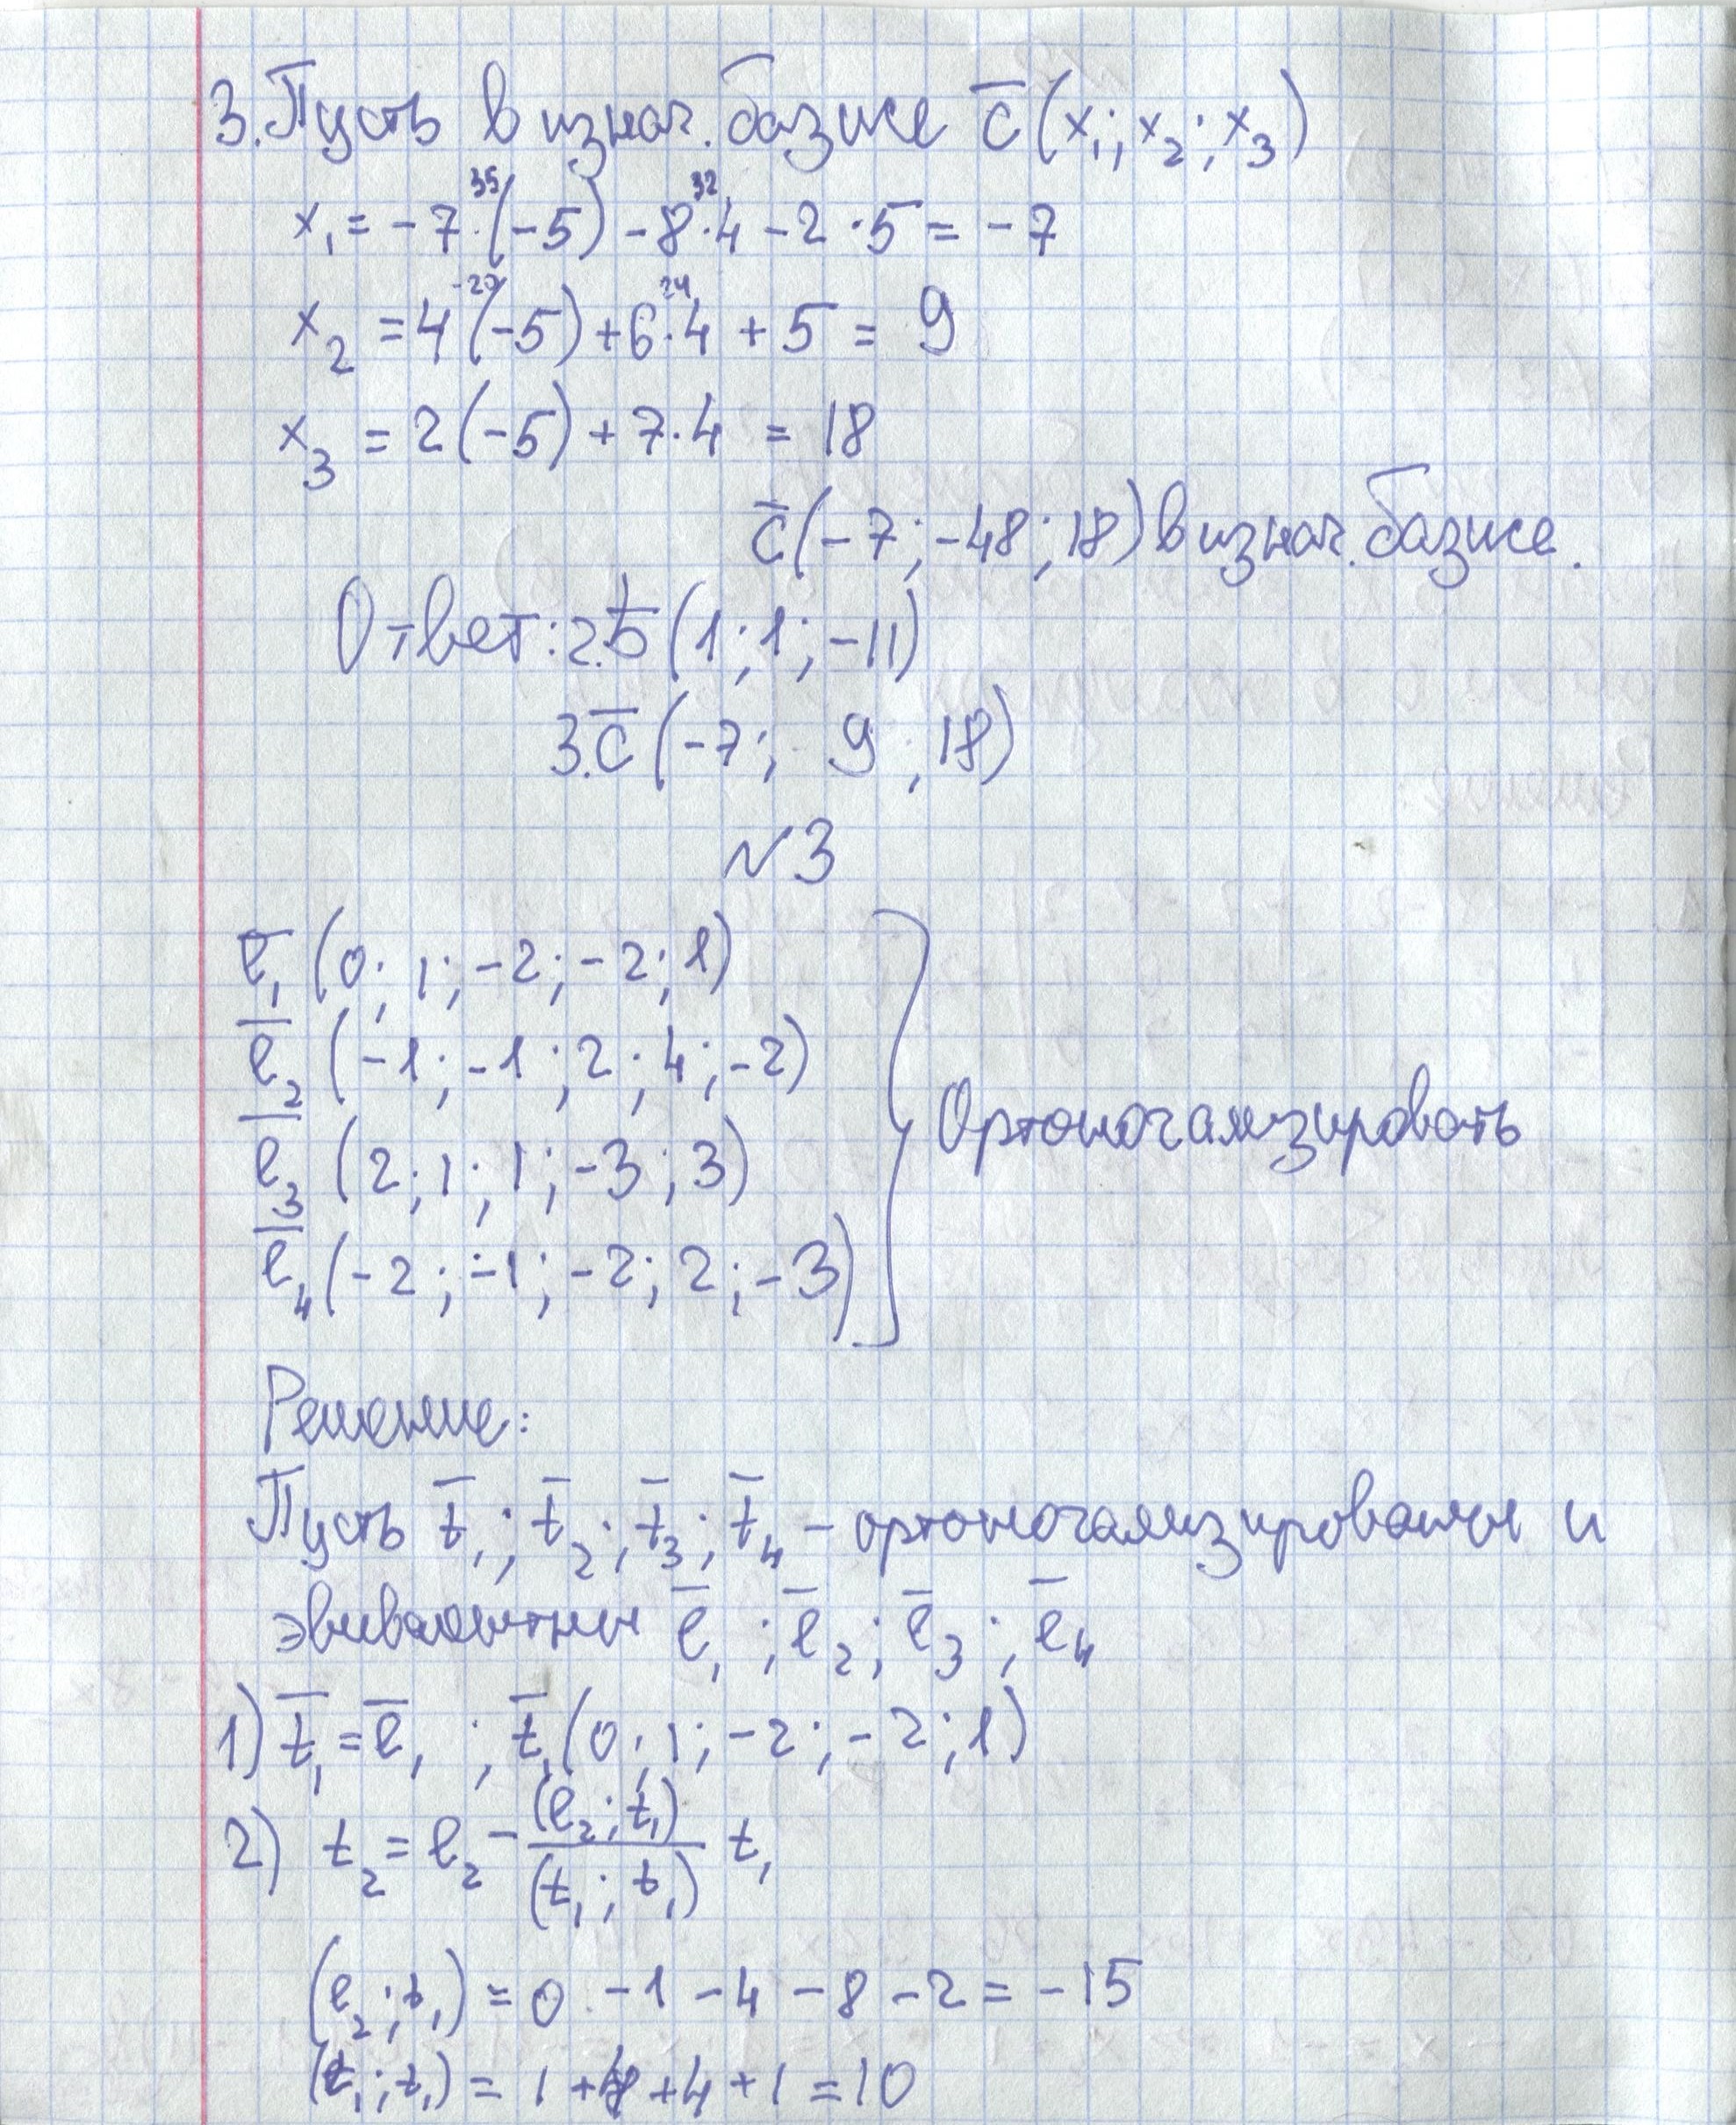 3. Пусть в изнач. базисе c̄ (x₁; x₂; x₃)
x₁ = -7·(-5) - 8·4 - 2·5 = -7
35 32
x₂ = 4(-5) + 6·4 + 5 = 9
-20 24
x₃ = 2(-5) + 7·4 = 18
c̄ (-7; -48; 18) в изнач. базисе.
Ответ: 2. b̄ (1; 1; -11)
3. c̄ (-7; 9; 18)
№3
ē₁ (0; 1; -2; -2; 1)
ē₂ (-1; -1; 2; 4; -2)
ē₃ (2; 1; 1; -3; 3)
ē₄ (-2; -1; -2; 2; -3)
Ортогонализировать
Решение:
Пусть t̄₁; t̄₂; t̄₃; t̄₄ - ортогонализированы и
эквивалентны ē₁; ē₂; ē₃; ē₄
1) t̄₁ = ē₁ ; t̄₁ (0; 1; -2; -2; 1)
2) t₂ = e₂ - (e₂; t₁)/(t₁; t₁) t₁
(e₂; t₁) = 0 - 1 - 4 - 8 - 2 = -15
(t₁; t₁) = 1 + 4 + 4 + 1 = 10